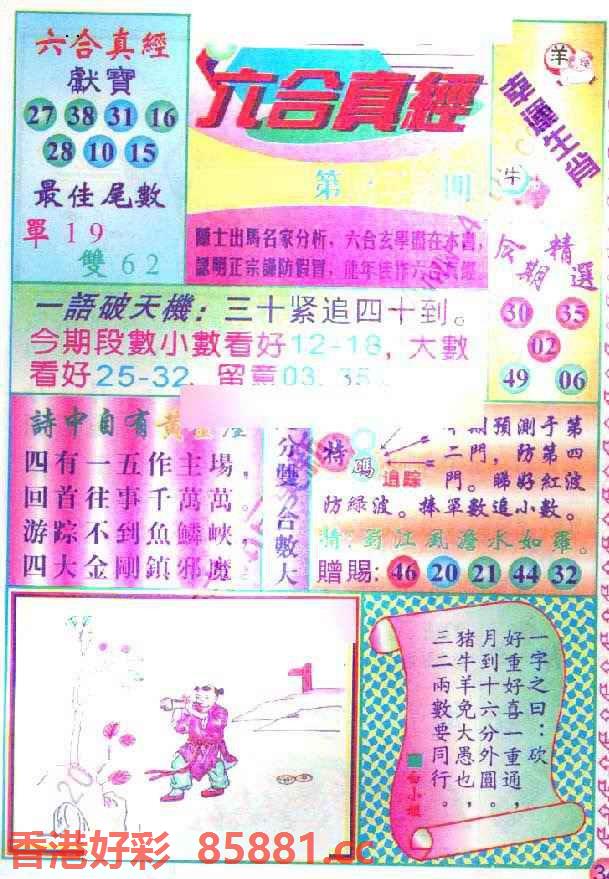 六合真經
獻寶
27 38 31 16
28 10 15
最佳尾數
單19
雙62
六合真經
第 期
隱士出馬名家分析，六合玄學盡在本書，
認明正宗謹防假冒，龍年佳作六合真經
羊
牛
幸運生肖
今期精選
30 35
02
49 06
一語破天機：三十紧追四十到。
今期段數小數看好12-18，大數
看好25-32，留意03. 35.
詩中自有黃金屋
四有一五作主場，
回首往事千萬萬。
游踪不到魚鱗峽，
四大金剛鎮邪魔。
分雙合數大
特碼
追踪
期預測于第
二門，防第四
門。睇好紅波
防綠波。捧單數追小數。
贈賜：46 20 21 44 32
一字之曰：砍
好重好喜一重通，
月到十六分外圓。
猪牛羊免大愚也，
三二兩數要同行。
白小姐
香港好彩 85881.cc
3